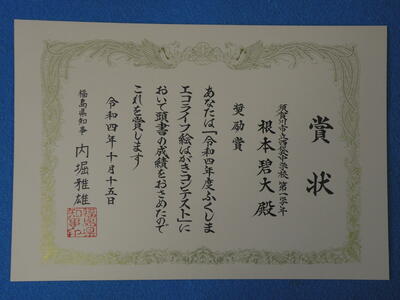 賞状
奨励賞
須賀川市立西袋中学校 第一学年
根本碧大殿
あなたは「令和四年度ふくしま
エコライフ絵はがきコンテスト」に
おいて頭書の成績をおさめたので
これを賞します
令和四年十月十五日
福島県知事 内堀雅雄
福島県
知事印